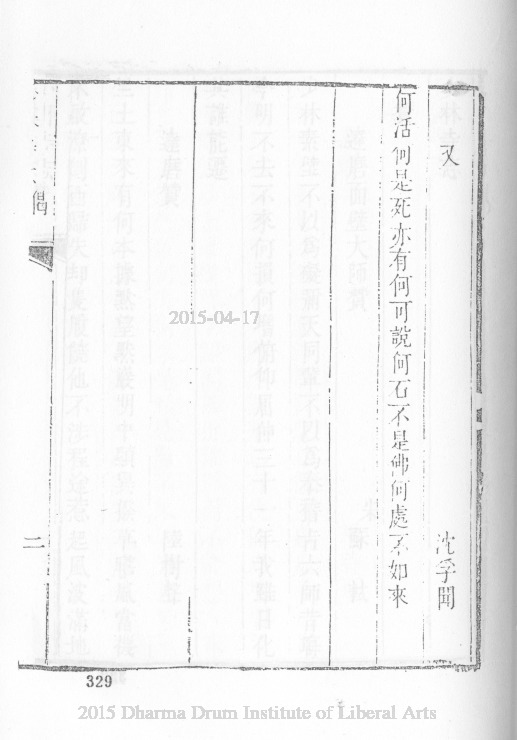 又
沈季聞
何活何是死亦有何可說何石不是佛何處不如來
偈
二
329
2015-04-17
2015 Dharma Drum Institute of Liberal Arts